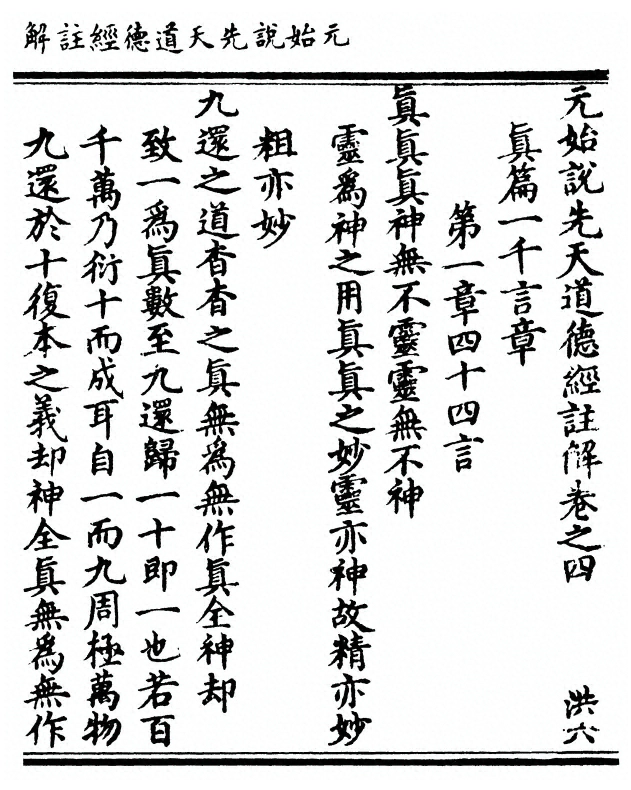 元始說先天道德經註解
元始說先天道德經註解卷之四 洪六
眞篇一千言章
第一章四十四言
眞眞眞神無不靈靈無不神
靈爲神之用眞眞之妙靈亦神故精亦妙
粗亦妙
九還之道杳杳之眞無爲無作眞全神却
致一爲眞數至九還歸一十即一也若百
千萬乃衍十而成耳自一而九周極萬物
九還於十復本之義却神全眞無爲無作